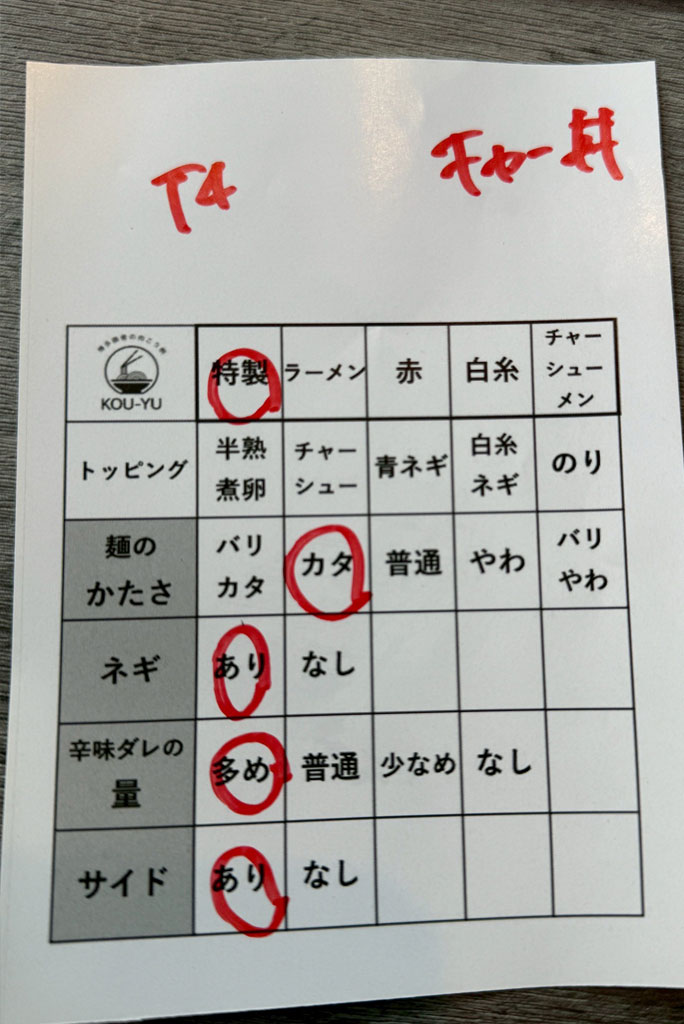 T4 チャー丼
KOU-YU 特製 ラーメン 赤 白糸 チャー
シュー
メン
トッピング 半熟
煮卵 チャー
シュー 青ネギ 白糸
ネギ のり
麺の
かたさ バリ
カタ カタ 普通 やわ バリ
やわ
ネギ あり なし
辛味ダレの
量 多め 普通 少なめ なし
サイド あり なし